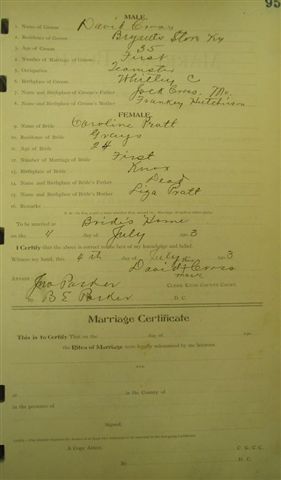 95
MALE.
1. Name of Groom David Cross
2. Residence of Groom Bryants Store Ky
3. Age of Groom 35
4. Number of Marriage of Groom First
5. Occupation Teamster
6. Birthplace of Groom Whitley C
7. Name and Birthplace of Groom's Father Jack Cross.
8. Name and Birthplace of Groom's Mother Frankey Hutchison
FEMALE.
9. Name of Bride Caroline Pratt
10. Residence of Bride Grays
11. Age of Bride 24
12. Number of Marriage of Bride First
13. Birthplace of Bride Knox
14. Name and Birthplace of Bride's Father Dead
15. Name and Birthplace of Bride's Mother Liza Pratt
16. Remarks
To be married at Bride's Home
on the 4 day of July 190 3
I Certify that the above is correct to the best of my knowledge and belief.
Witness my hand, this 4th day of July 190 3
David X Cross
mark
Attest:
Jno Parker
CLERK KNOX COUNTY COURT.
By B E Parker D. C.
Marriage Certificate
This is to Certify That on the day of 190
the Rites of Marriage were legally solemnized by me between
and
at in the County of
in the presence of
Signed
A Copy Attest:
C. K. C. C.
By D. C.